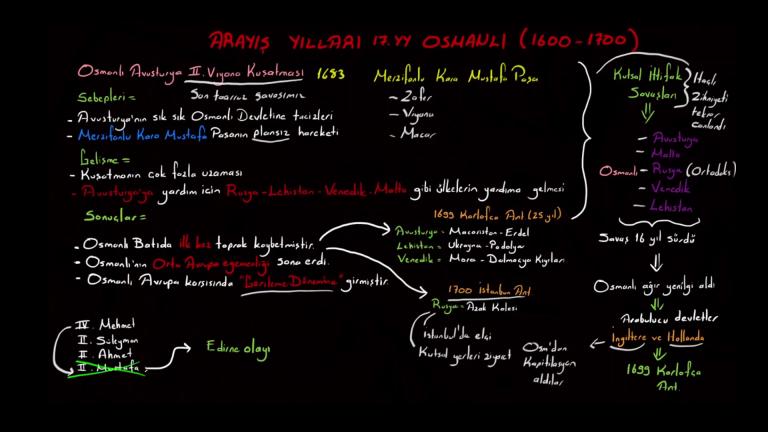 ARAYIŞ YILLARI 17.YY OSMANLI (1600-1700)
Osmanlı Avusturya II. Viyana Kuşatması 1683
Son taarruz savaşımız
Sebepleri =
- Avusturya'nın sık sık Osmanlı Devletine tacizleri
- Merzifonlu Kara Mustafa Paşanın plansız hareketi
Gelişme =
- Kuşatmanın çok fazla uzaması
- Avusturya'ya yardım için Rusya - Lehistan - Venedik - Malta gibi ülkelerin yardıma gelmesi
Sonuçlar =
- Osmanlı Batıda ilk kez toprak kaybetmiştir.
- Osmanlı'nın Orta Avrupa egemenliği sona erdi.
- Osmanlı Avrupa karşısında "Gerileme Dönemine" girmiştir.
Merzifonlu Kara Mustafa Paşa
- Zafer
- Viyana
- Macar
1699 Karlofça Ant (25 yıl)
Avusturya = Macaristan - Erdel
Lehistan = Ukrayna - Podolya
Venedik = Mora - Dalmaçya Kıyıları
1700 İstanbul Ant
Rusya = Azak Kalesi
İstanbul'da elçi
Kutsal yerleri ziyaret
Kutsal İttifak
Savaşları
Haçlı
Zihniyeti
tekrar
canlandı
- Avusturya
- Malta
Osmanlı - Rusya (Ortodoks)
- Venedik
- Lehistan
Savaş 16 yıl sürdü
Osmanlı ağır yenilgi aldı
Arabulucu devletler
İngiltere ve Hollanda
Osm'dan
Kapitilasyon
aldılar
1699 Karlofça
Ant.
IV. Mehmet
II. Süleyman
II. Ahmet
II. Mustafa
Edirne olayı